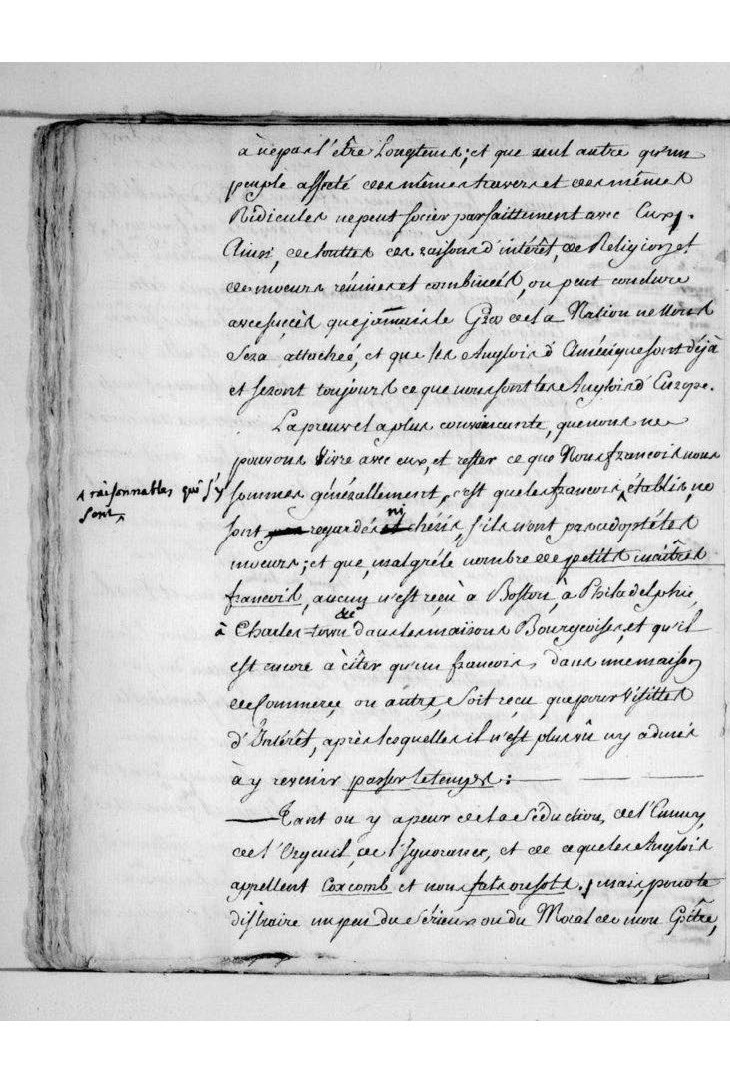 à nepas l'être Longtems; et que nul autre qu'un
peuple affecté des mêmes travers et des mêmes
Ridicules ne peut socier parfaittement avec Eux.
Ainsi, de touttes ces raisons d'intérêt, de Religion, et
de moeurs réunies et combinées, on peut conclure
avec succès que jamais le Gros de la Nation ne Nous
sera attachée, et que les Anglois d'Amérique sont déjà
et seront toujours ce que nous sont les Anglois d'Europe.
La preuve la plus convaincante, que nous ne
pouvons Vivre avec eux, et rester ce que Nous françois nous
sommes générallement, c'est que les françois raisonnables qui s'y sont établis, ne
sont regardés ni chéris, s'ils n'ont pas adopté les
moeurs; et que, malgré le nombre de petits maîtres
françois, aucun n'est reçu à Boston, à Philadelphie,
à Charles-town &c dans les maisons Bourgeoises, et qu'il
est encore à citer qu'un françois, dans une maison
de Commerce, ou autre, soit reçu que pour Visittes
d'Intérêt, après lesquelles il n'est plus vû ny admis
à y revenir passer le temps:
Tant on y a peur de la séduction, de l'Ennuy,
de l'Orgeuil, de l'Ignorance, et de ce que les Anglois
appellent Coxcomb et nous fats ou sots. mais, pour te
distraire un peu du sérieux ou du Moral de mon Epître,